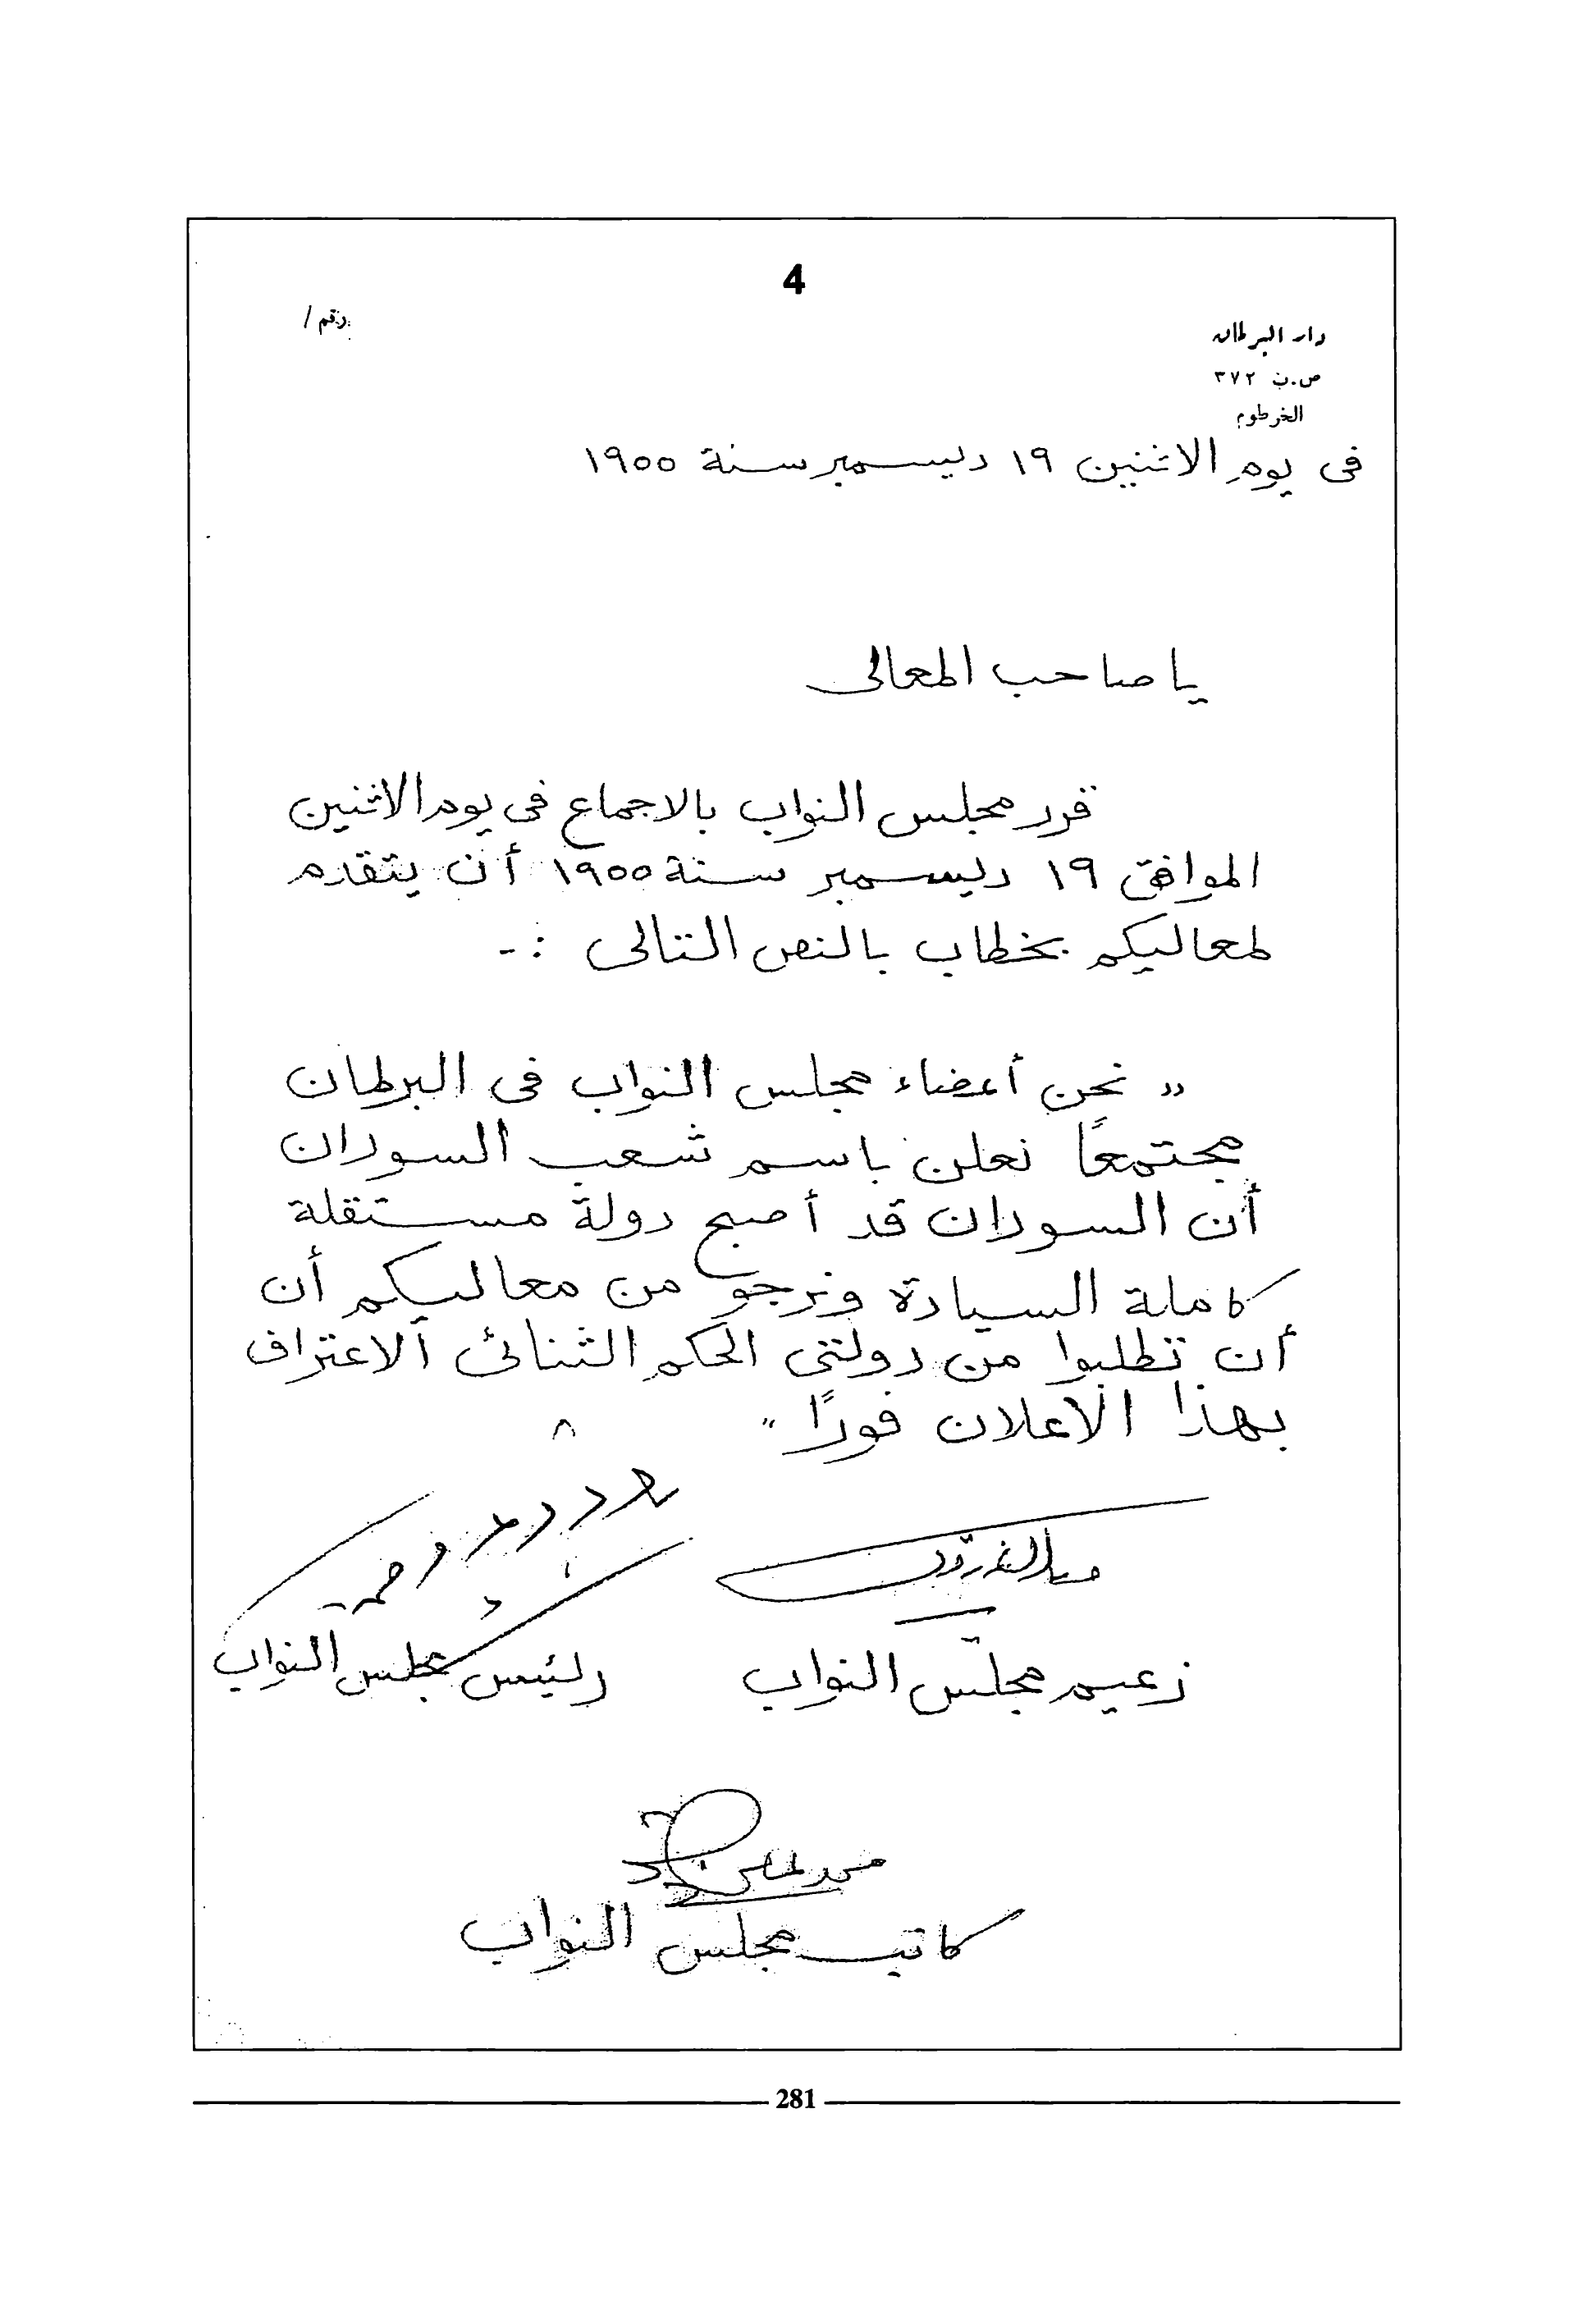 4
رقم /
دار البرلمان
ص.ب ٣٧٢
الخرطوم
فى يوم الاثنين ١٩ ديسمبر سنة ١٩٥٥
يا صاحب المعالى
قرر مجلس النواب بالاجماع فى يوم الاثنين
الموافق ١٩ ديسمبر سنة ١٩٥٥ أن يتقدم
لمعاليكم بخطاب بالنص التالى :-
" نحن أعضاء مجلس النواب فى البرلمان
مجتمعاً نعلن باسم شعب السودان
أن السودان قد أصبح دولة مستقلة
كاملة السيادة ونرجو من معاليكم أن
أن تطلبوا من دولتى الحكم الثنائى الاعتراف
بهذا الاعلان فوراً "
زعيم مجلس النواب
رئيس مجلس النواب
كاتب مجلس النواب
281